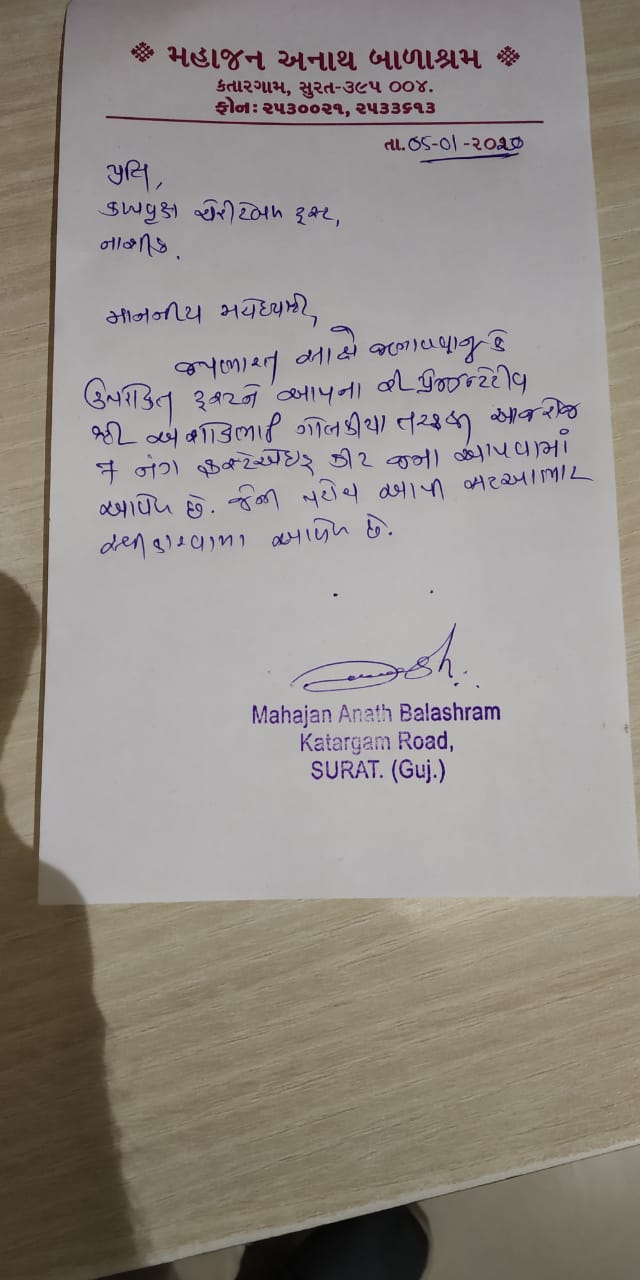 મહાજન અનાથ બાળાશ્રમ
કતારગામ, સુરત-૩૯૫ ૦૦૪.
ફોન: ૨૫૩૦૦૨૧, ૨૫૩૩૬૧૩
તા. 05-01-2020
પ્રતિ,
કલ્પવૃક્ષ ચેરીટેબલ ટ્રસ્ટ,
નાશીક.
માનનીય મહોદયશ્રી,
જયભારત સાથે જણાવવાનું કે
ઉપરોકત ટ્રસ્ટને આપના રીપ્રેજન્ટેટીવ
શ્રી અશોકભાઈ ગોલકીયા તરફથી આજરોજ
7 નંગ ફર્સ્ટએઇડ કીટ જમા આપવામાં
આવેલ છે. જેની પહોંચ આપી સહઆભાર
સ્વીકારવામાં આવેલ છે.
Mahajan Anath Balashram
Katargam Road,
SURAT. (Guj.)